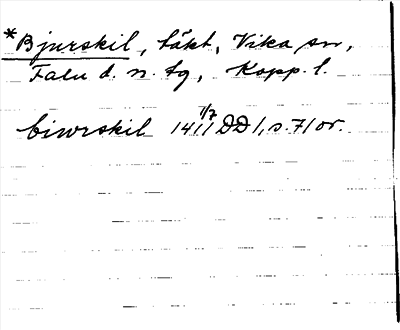 *Bjurskil, täkt, Vika sn,
Falu d. n. tg, Kopp. l.
biwrskil 1411 1/7 DD 1, s. 71 or.